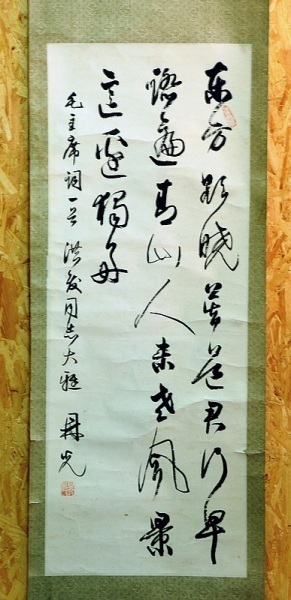 东方欲晓莫道君行早
踏遍青山人未老风景
这边獨好
毛主席词一首 洪发同志大雅